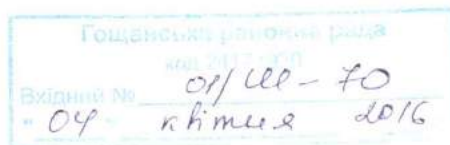 Гощанська районна рада
Вхідний № 01/ІІІ-70
" 04 " квітня 2016